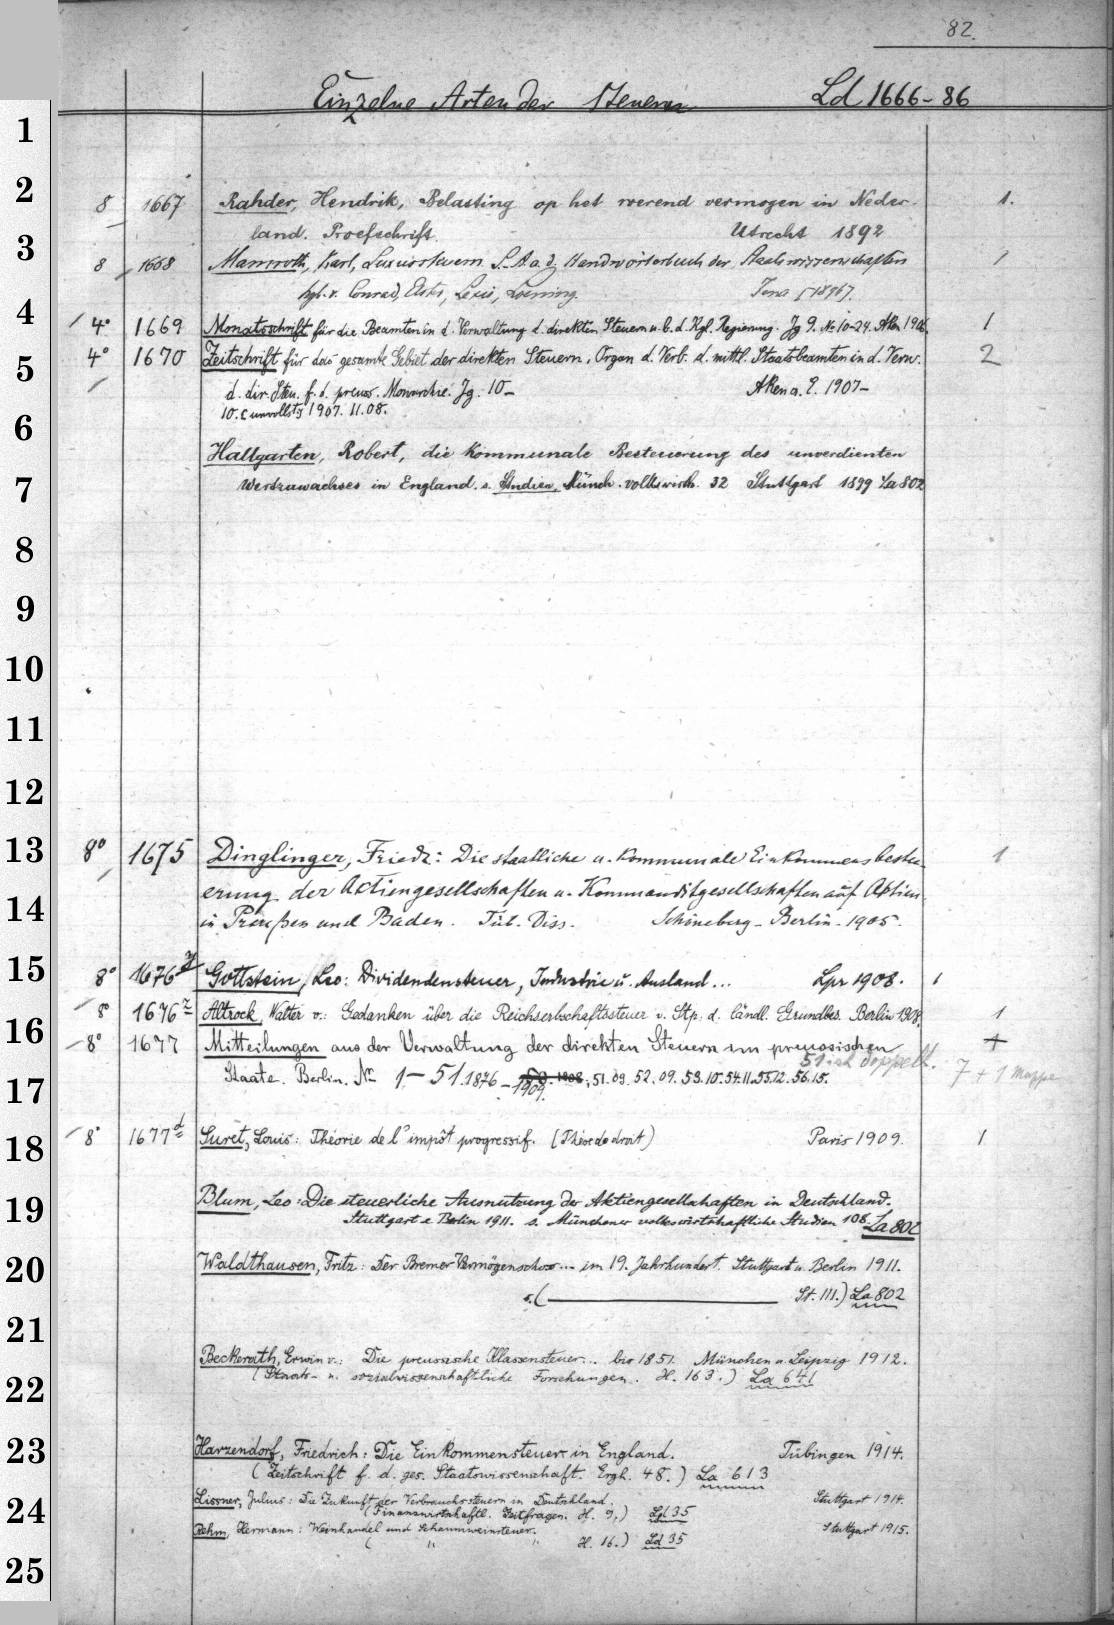 82.
Einzelne Arten der Steuern Ld 1666-86
1
2
3
4
5
6
7
8
9
10
11
12
13
14
15
16
17
18
19
20
21
22
23
24
25
8 1667 Rahder, Hendrik, Belasting op het roerend vermogen in Neder- 1.
land. Proefschrift. Utrecht 1892
8 1668 Mamroth, Karl, Luxussteuern. S.A. a. d. Handwörterbuch der Staatswissenschaften 1
hg. v. Conrad, Elster, Lexis, Loening. Jena [1896].
4° 1669 Monatsschrift für die Beamten in d. Verwaltung d. direkten Steuern u. b. d. Kgl. Regierung. Jg 9. No 10-24. Aken 1906. 1
4° 1670 Zeitschrift für das gesamte Gebiet der direkten Steuern, Organ d. Verb. d. mittl. Staatsbeamten in d. Verw. 2
d. dir. Steu. f. d. preuss. Monarchie. Jg. 10- Aken a. E. 1907-
10. [unvollst.] 1907. 11.08.
Hallgarten, Robert, die kommunale Besteuerung des unverdienten
Wertzuwachses in England. s. Studien, Münch. volkswirtsch. 32 Stuttgart 1899 La 802
8° 1675 Dinglinger, Friedr: Die staatliche u. kommunale Einkommensbesteu- 1
erung der Actiengesellschaften u. Kommanditgesellschaften auf Aktien
in Preußen und Baden. Tüb. Diss. Schöneberg-Berlin 1905.
8° 1676 y Gottstein, Leo: Dividendensteuer, Industrie u. Ausland... Lpz 1908. 1
8° 1676 z Altrock, Walter v.: Gedanken über die Reichserbschaftssteuer v. Stp. d. ländl. Grundbes. Berlin 1908. 1
8° 1677 Mitteilungen aus der Verwaltung der direkten Steuern im preussischen +
51 ist doppelt.
Staate. Berlin. No 1-51. 1876- 50. 1908, 51. 09. 52. 09. 53. 10. 54. 11. 55. 12. 56. 15. 7 + 1 Mappe
1909.
8° 1677 d Suret, Louis: Théorie de l'impôt progressif. (Thèse de droit) Paris 1909. 1
Blum, Leo: Die steuerliche Ausnutzung der Aktiengesellschaften in Deutschland.
Stuttgart u Berlin 1911. s. Münchener volkswirtschaftliche Studien 108. La 802
Waldthausen, Fritz: Der Bremer Vermögensschoss... im 19. Jahrhundert. Stuttgart u. Berlin 1911.
s. ( St. 111.) La 802
Beckerath, Erwin v.: Die preussische Klassensteuer... bis 1851. München u. Leipzig 1912.
(Staats- u. sozialwissenschaftliche Forschungen. H. 163.) La 641
Harzendorf, Friedrich: Die Einkommensteuer in England. Tübingen 1914.
(Zeitschrift f. d. ges. Staatswissenschaft. Ergh. 48.) La 613
Lissner, Julius: Die Zukunft der Verbrauchssteuern in Deutschland. Stuttgart 1914.
(Finanzwirtschaftl. Zeitfragen. H. 9.) Ld 35
Rehm, Hermann: Weinhandel und Schaumweinsteuer. Stuttgart 1915.
( " " H. 16.) Ld 35